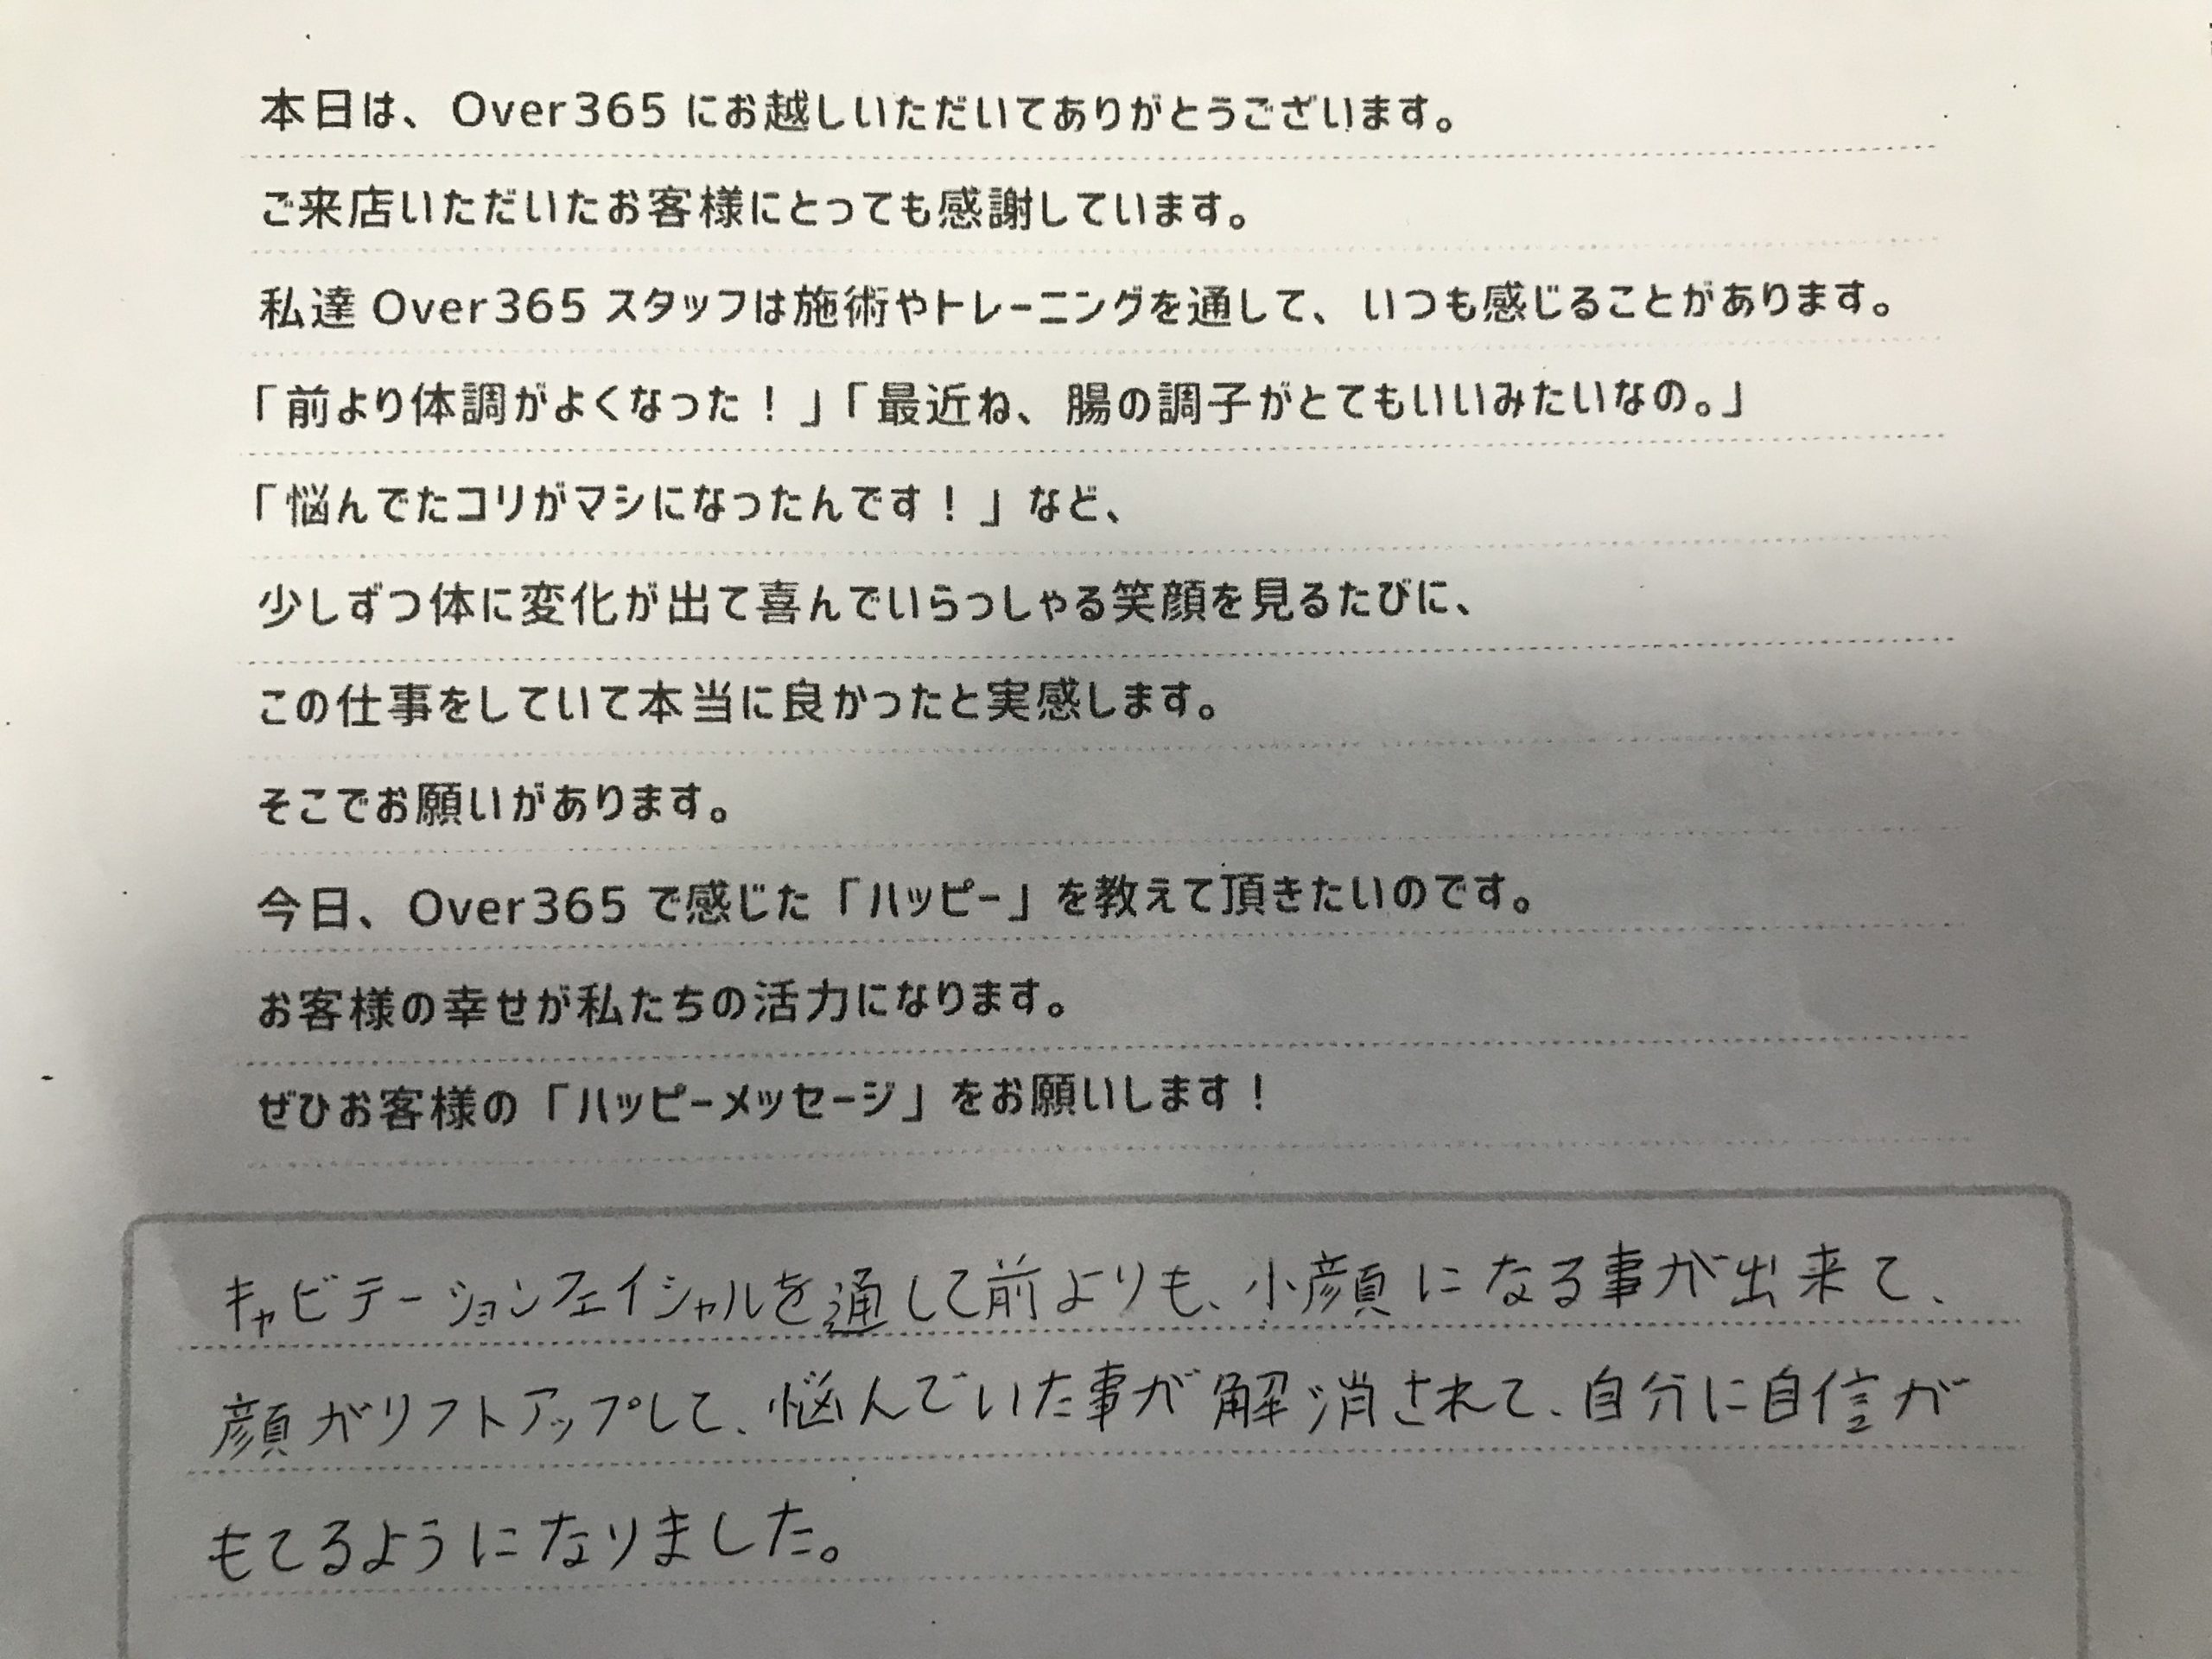 本日は、Over365 にお越しいただいてありがとうございます。
ご来店いただいたお客様にとっても感謝しています。
私達 Over365 スタッフは施術やトレーニングを通して、いつも感じることがあります。
「前より体調がよくなった！」「最近ね、腸の調子がとてもいいみたいなの。」
「悩んでたコリがマシになったんです！」など、
少しずつ体に変化が出て喜んでいらっしゃる笑顔を見るたびに、
この仕事をしていて本当に良かったと実感します。
そこでお願いがあります。
今日、Over365 で感じた「ハッピー」を教えて頂きたいのです。
お客様の幸せが私たちの活力になります。
ぜひお客様の「ハッピーメッセージ」をお願いします！
キャビテーションフェイシャルを通して前よりも、小顔になる事が出来て、
顔がリフトアップして、悩んでいた事が解消されて、自分に自信が
もてるようになりました。